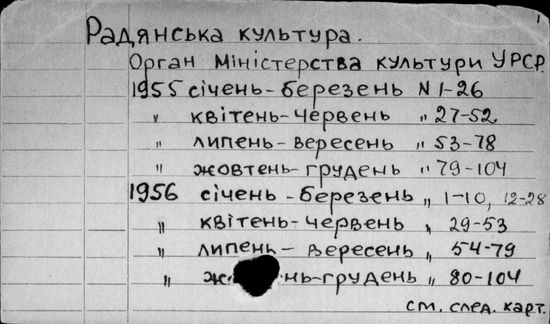 1
Радянська культура.
Орган Міністерства культури УРСР.
1955 січень-березень N 1-26
" квітень-червень " 27-52
" липень-вересень " 53-78
" жовтень-грудень " 79-104
1956 січень-березень " 1-10, 12-28
" квітень-червень " 29-53
" липень-вересень " 54-79
" ень-грудень " 80-104
см. след. карт.